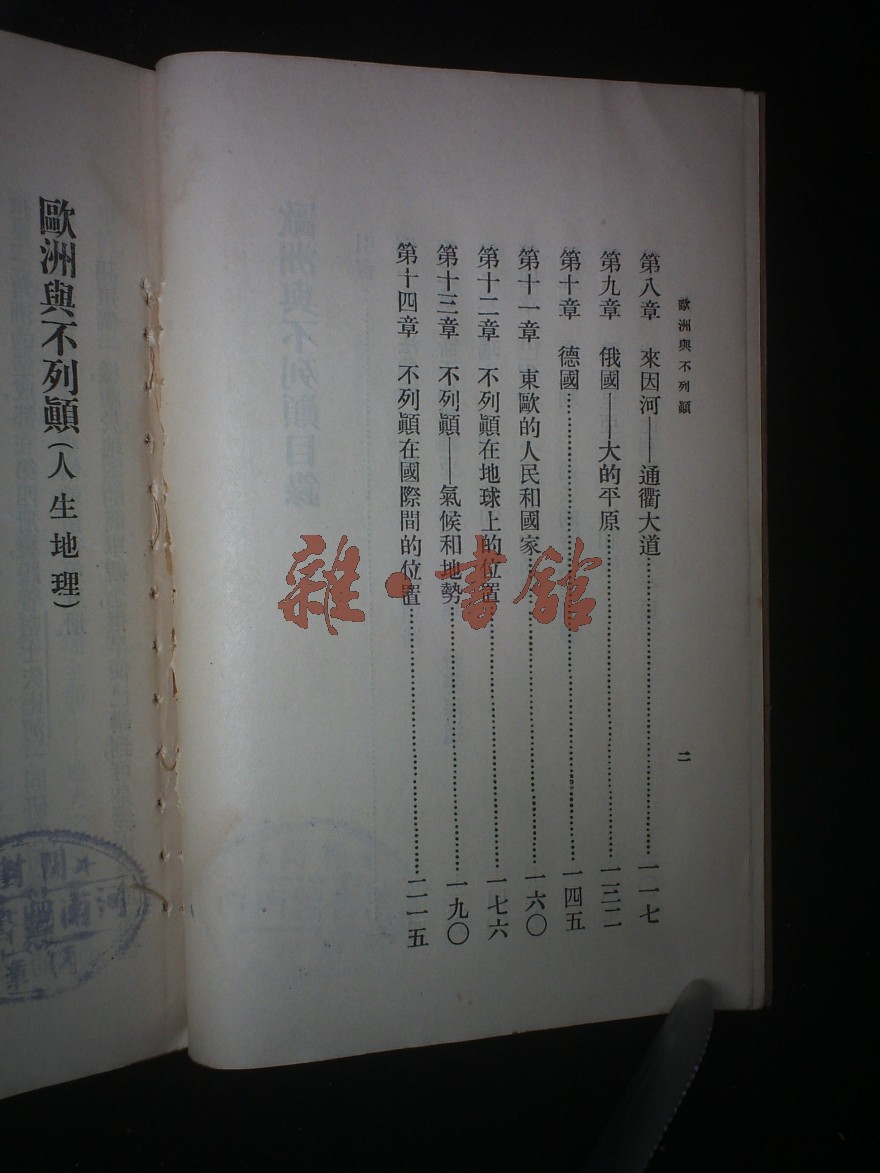 歐洲與不列顚
第八章 來因河——通衢大道……一一七
第九章 俄國——大的平原……一三二
第十章 德國……一四五
第十一章 東歐的人民和國家……一六〇
第十二章 不列顚在地球上的位置……一七六
第十三章 不列顚——氣候和地勢……一九〇
第十四章 不列顚在國際間的位置……二一五
二
歐洲與不列顚(人生地理)
雜·書館